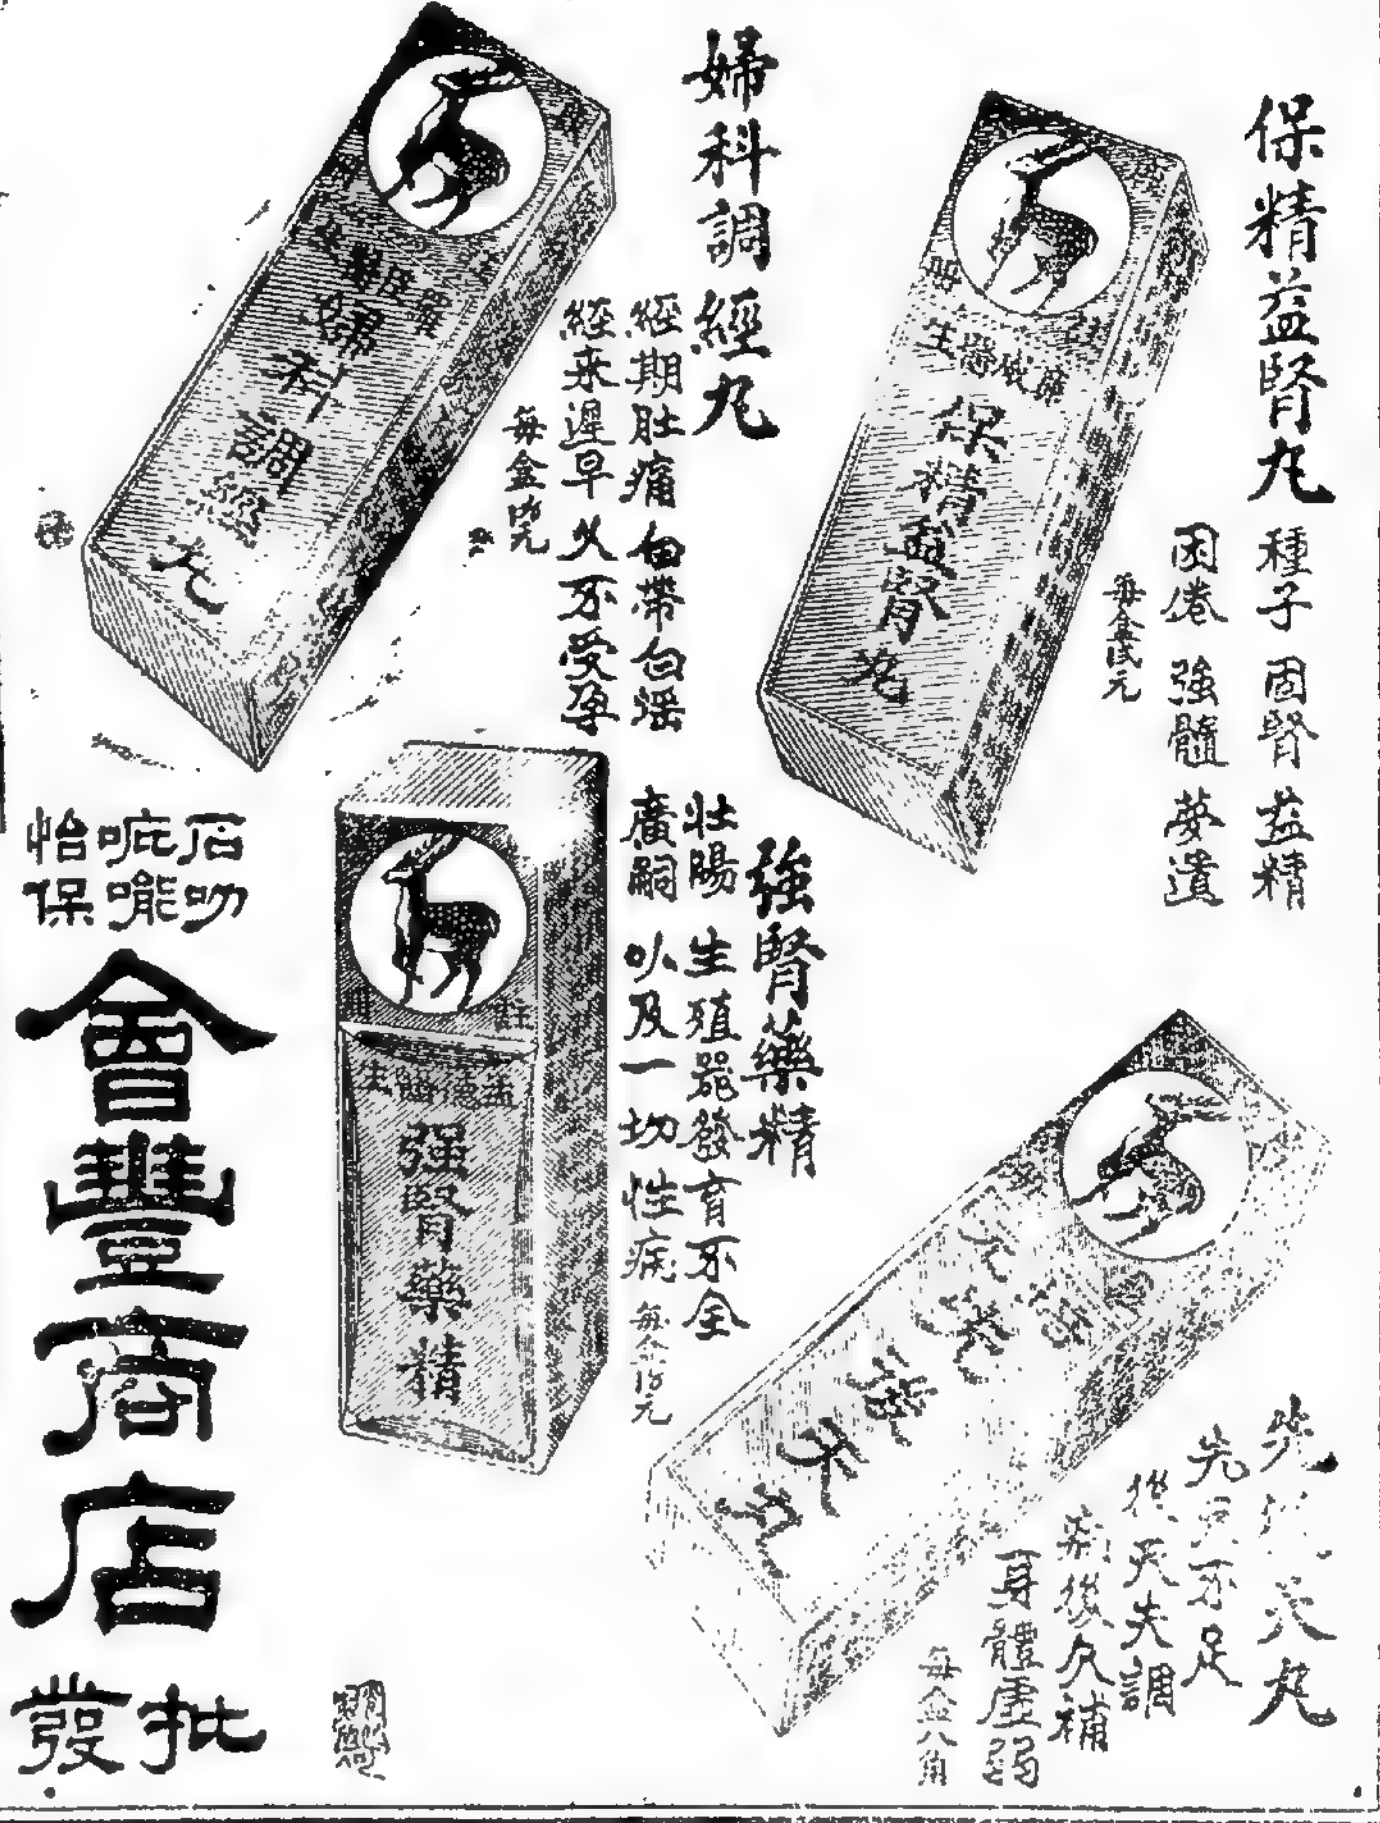 保精益腎丸
種子 固腎 益精
困倦 強髓 夢遺
每盒弍元
保精益腎丸
婦科調經丸
經期肚痛 白帶白淫
經來遲早 久不受孕
每盒
婦科調經丸
強腎藥精
壯陽 生殖器發育不全
廣嗣 以及一切性病
每盒 元
註冊
强腎藥精
先 天丸
先天不足
後天失調
病後欠補
身體虛弱
每盒八角
石叻
吡嚨
怡保
會豐商店
批發